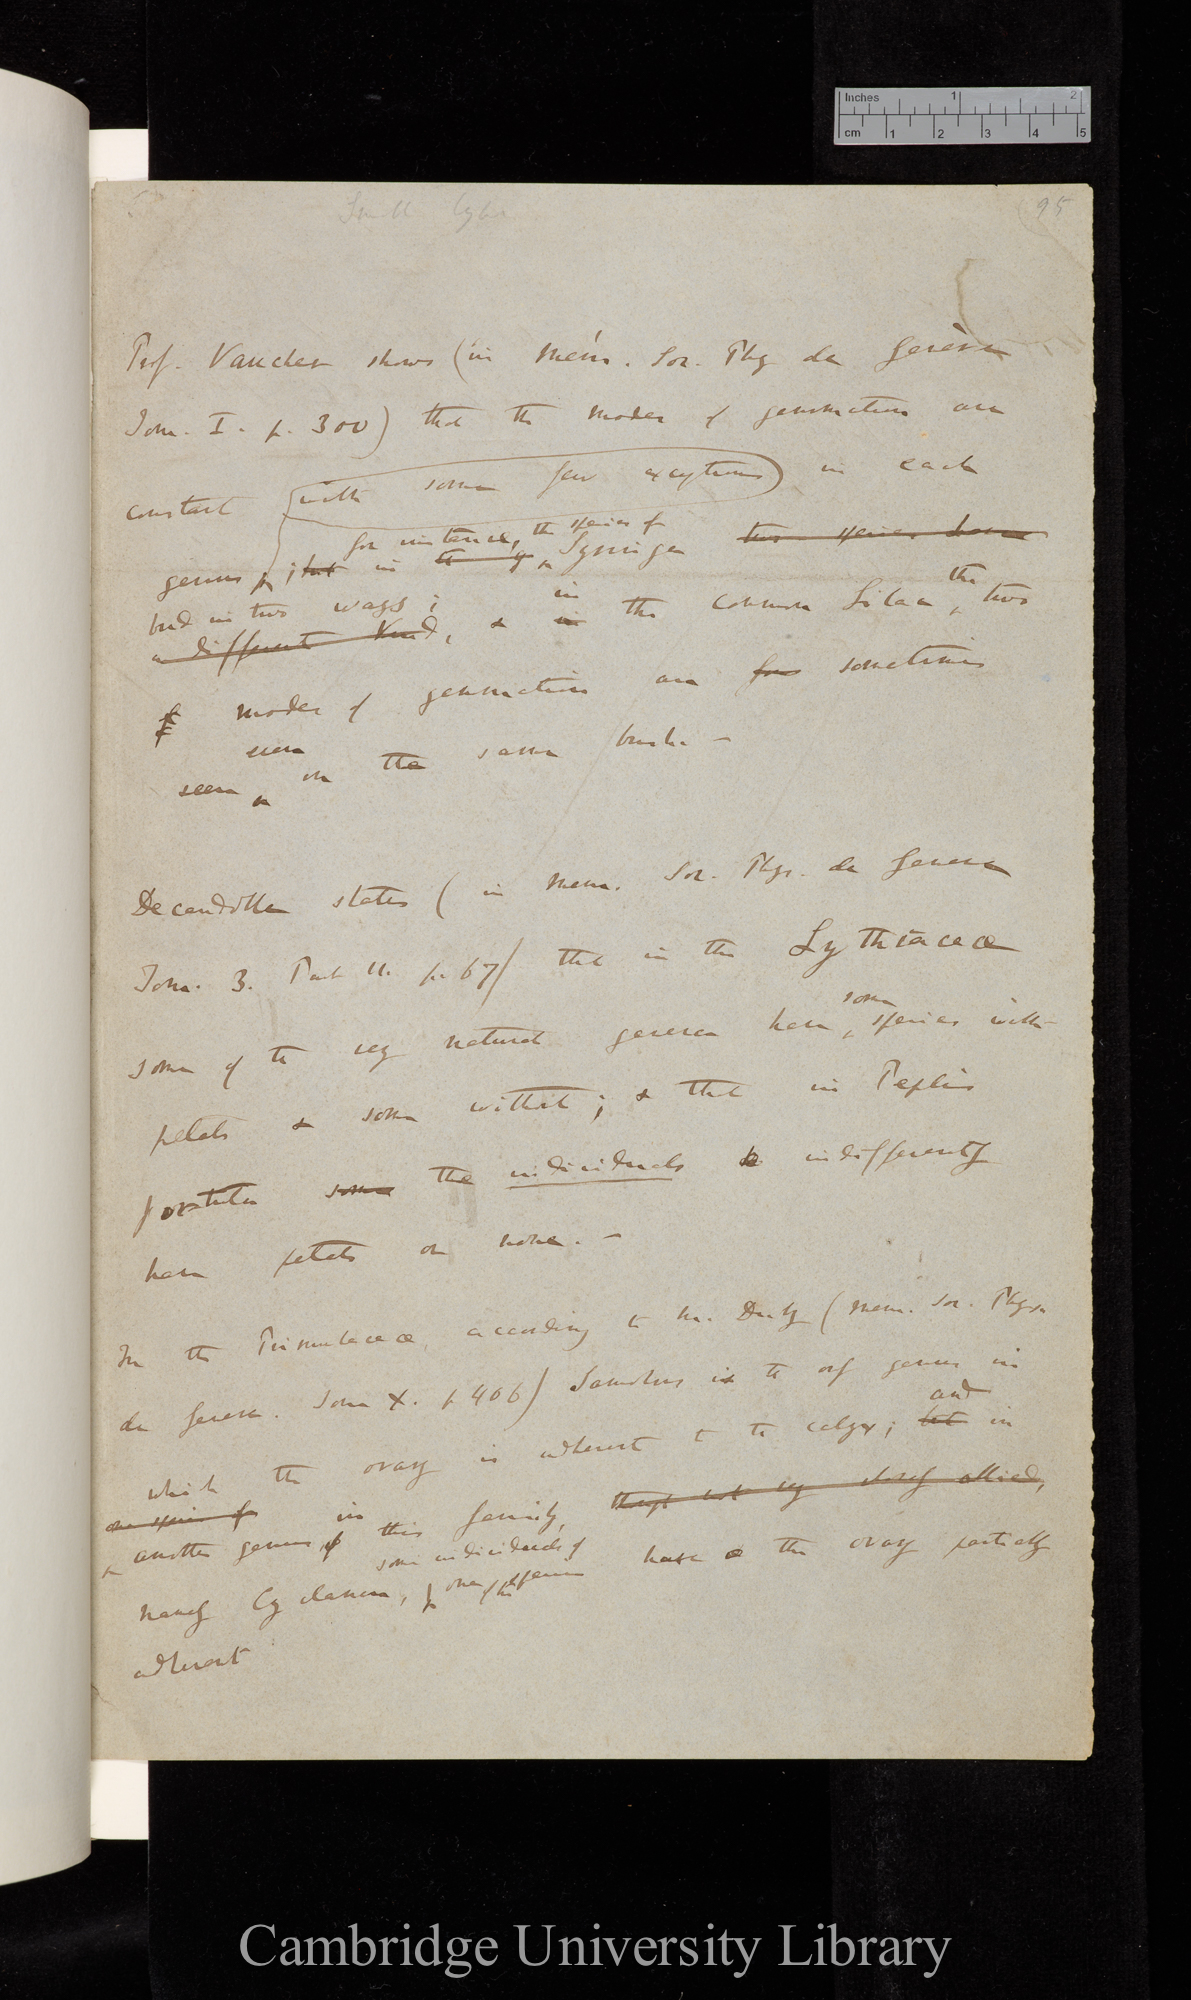 Small type
95
Inches 1 2
cm 1 2 3 4 5
Prof. Vaucher shows (in Mém. Soc. Phy de Genève
Tom. I. p. 300) that the modes of gemmation are
constant (with some few exceptions) in each
for instance, the species of
genus; but in the Syringa two species have
bud in two ways; in the
a different kind, & in the common Lilac, two
modes of gemmation are sometimes
seen
seen on the same bush. —
Decandolle states (in Mem. Soc. Phys. de Geneva
Tom. 3. Part II. p. 67) that in the Lythraceæ
some
some of the very natural genera have species with
petals & some without; & that in Peplis
portula some the individuals indifferently
have petals or none. —
In the Primulaceæ, according to M. Duby (Mem. Soc. Phys.
de Geneva. Tom X. p 406) Samolus is the only genus in
and
which the ovary is adherent to the calyx; but in
one species of in this family, though not very closely allied,
another genus of
some individuals of
namely Cyclamen, one species have the ovary partially
adherent
Cambridge University Library